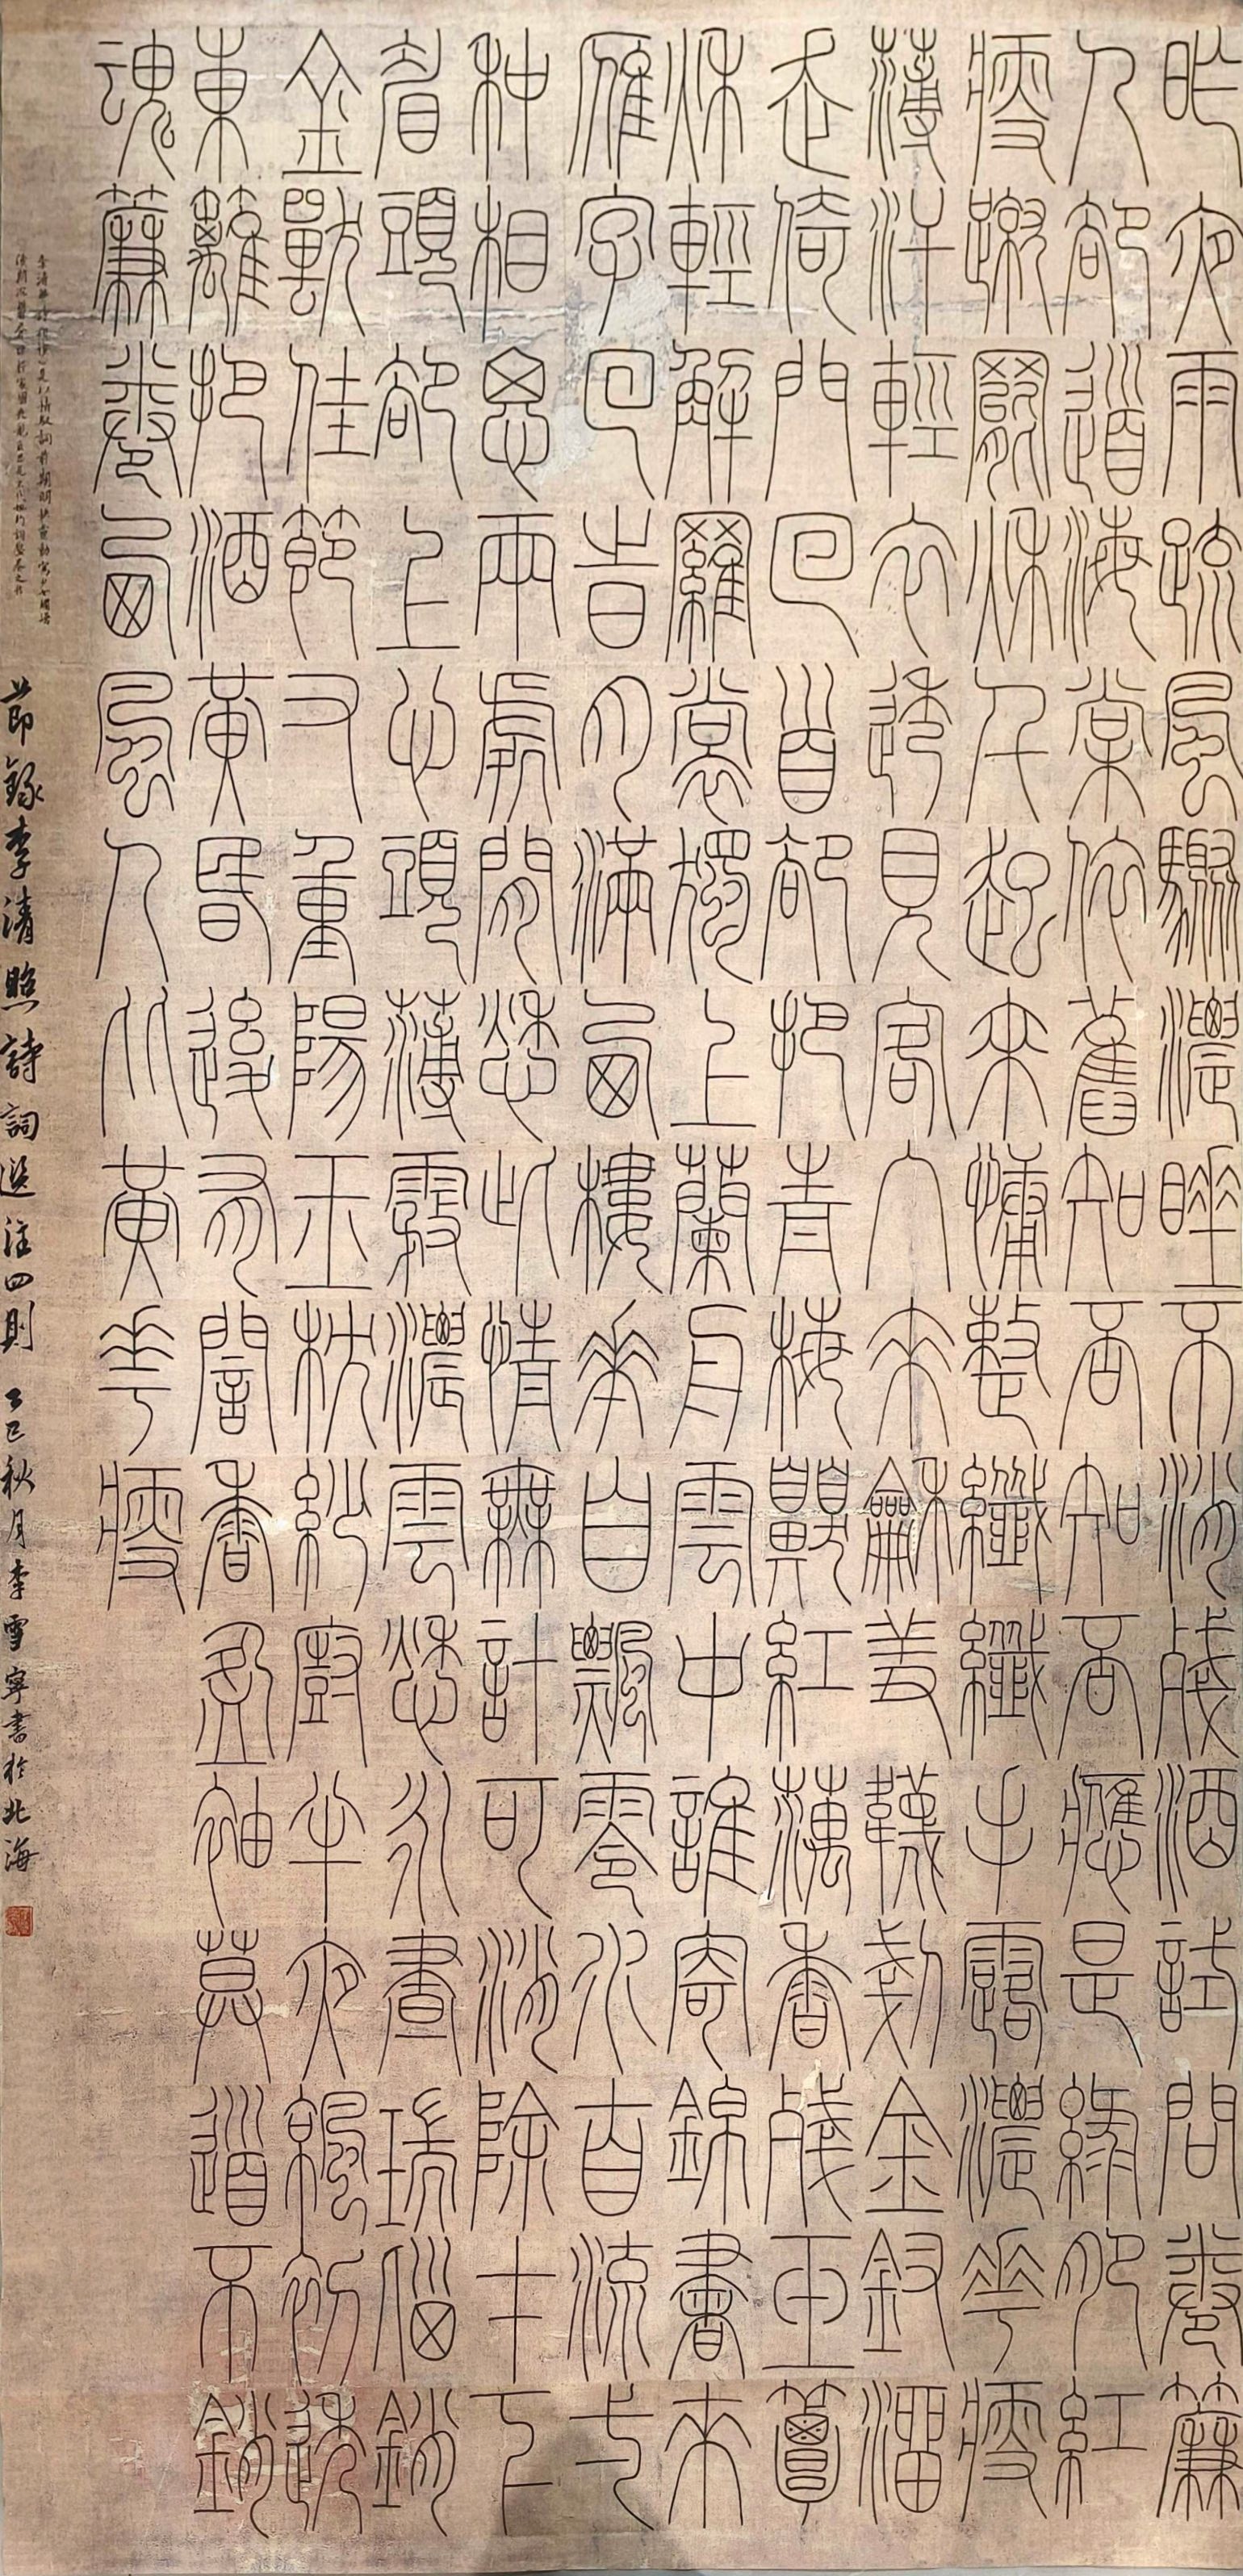 昨夜雨疏風驟濃睡不消殘酒試問卷簾
人卻道海棠依舊知否知否應是綠肥紅
瘦蹴罷秋千起來慵整纖纖手露濃花瘦
薄汗輕衣透見客入來龢羞韈剗金釵溜
走倚門回首卻把青梅齅紅藕香殘玉簟
秋輕解羅裳獨上蘭舟雲中誰寄錦書來
雁字回旹月滿西樓花自飄零水自流一
种相思兩處閒愁此情無計可消除才下
眉頭卻上心頭薄霧濃雲愁永晝瑞腦銷
金獸佳節又重陽玉枕紗廚半夜涼初透
東籬把酒黃昏後有闇香盈袖莫道不銷
魂簾卷西風人比黃花瘦
節錄李清照詩詞選注四則 乙巳秋月李雪寧書於北海